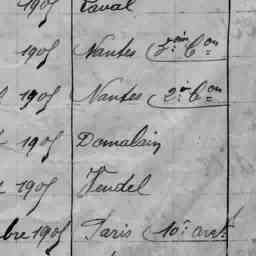 1905 Laval
1905 Nantes (7e Con
1905 Nantes (2e Con
1905 Domalain
1905 Vendel
bre 1905 Paris (10e arrt